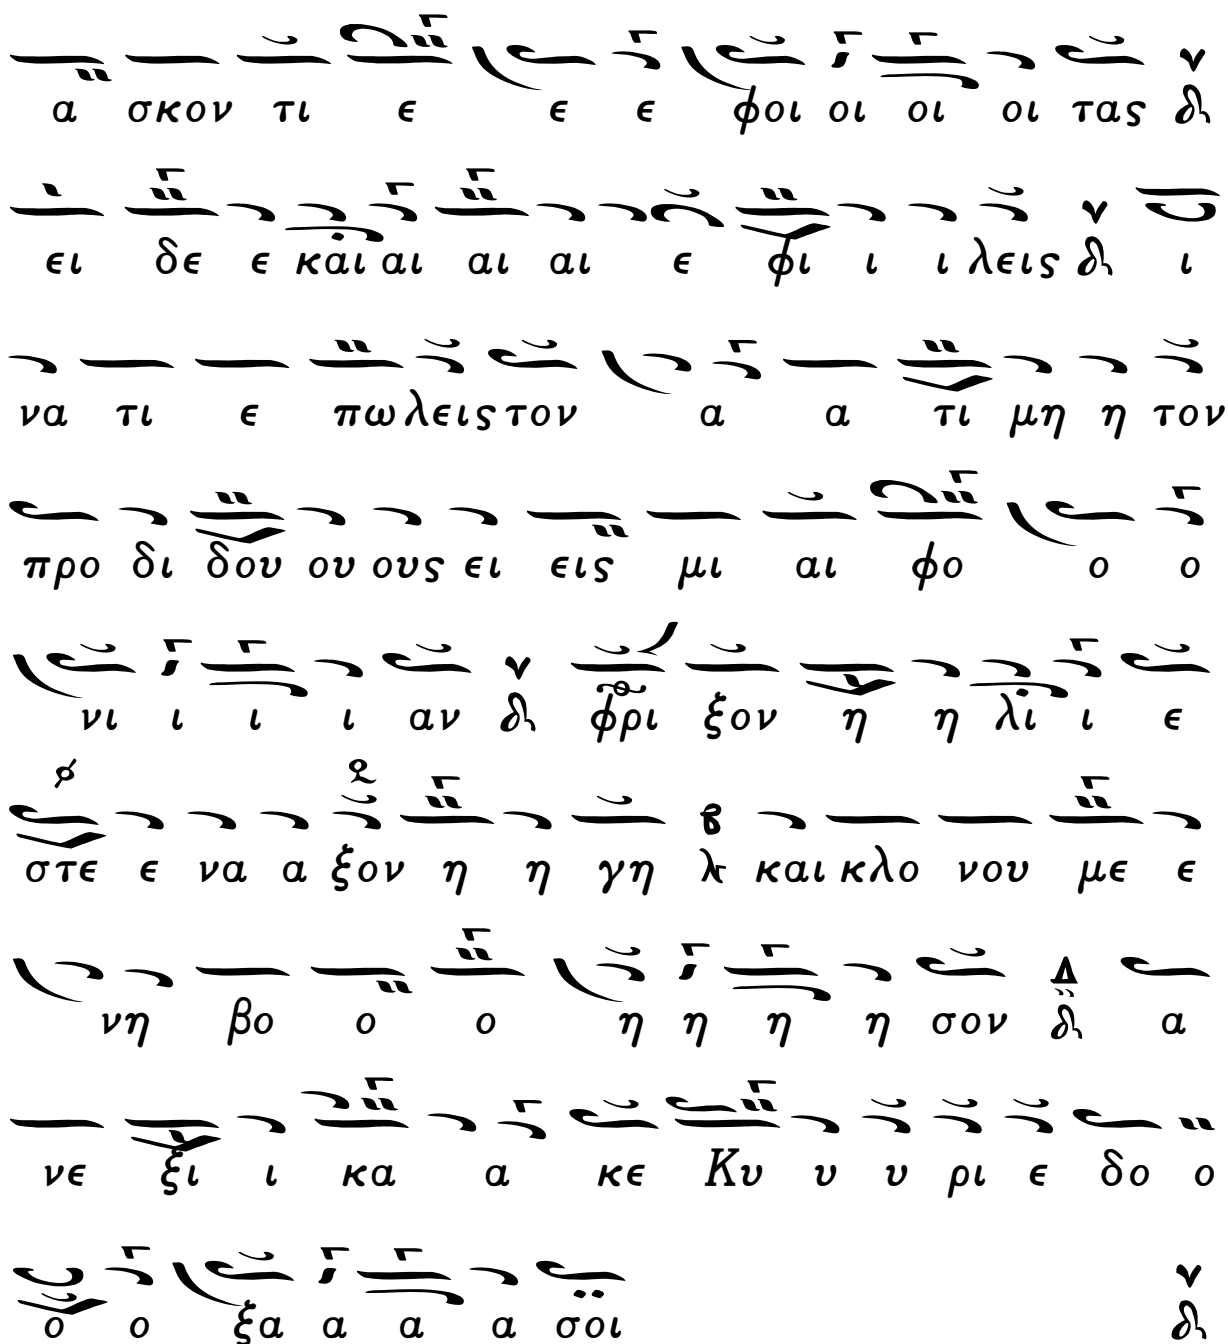 α σκον τι ε ε ε φοι οι οι οι τας δι
ει δε ε και αι αι αι ε φι ι ι λεις δι ι
να τι ε πω λεις τον α α τι μη η τον
προ δι δου ου ους ει εις μι αι φο ο ο
νι ι ι ι αν δι φρι ξον η η λι ι ε
στε ε να α ξον η η γη και κλο νου με ε
νη βο ο ο η η η η σον Δ δι α
νε ξι ι κα α κε Κυ υ υ ρι ε δο ο
ο ο ξα α α α σοι δι